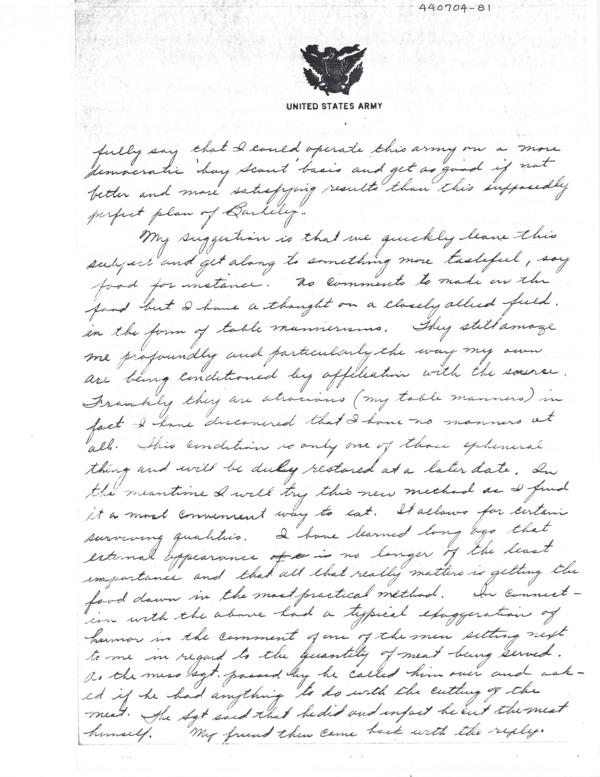 440704-81
UNITED STATES ARMY
fully say that I could operate this army on a more
democratic 'boy scout' basis and get as good if not
better and more satisfying results than this supposedly
perfect plan of Barkeley.
My suggestion is that we quickly leave this
subject and get along to something more tasteful, say
food for instance. No comments to make on the
food but I have a thought on a closely allied field.
in the form of table mannerisms. They still amaze
me profoundly and particularly the way my own
are being conditioned by affiliation with the source.
Frankly they are atrocious (my table manners) in
fact I have discovered that I have no manners at
all. This condition is only one of those epheneral
thing and will be duley restored at a later date. In
the meantime I will try this new method as I find
it a most convenient way to eat. It allows for certain
surviving qualities. I have learned long ago that
external appearance is no longer of the least
importance and that all that really matters is getting the
food down in the most practical method. In connect-
ion with the above had a typical exaggeration of
humor in the comment of one of the men sitting next
to me in regard to the quantity of meat being served.
As the mess sgt. passed by he called him over and ask-
ed if he had anything to do with the cutting of the
meat. The sgt said that he did and infact he cut the meat
himself. My friend then came back with the reply.